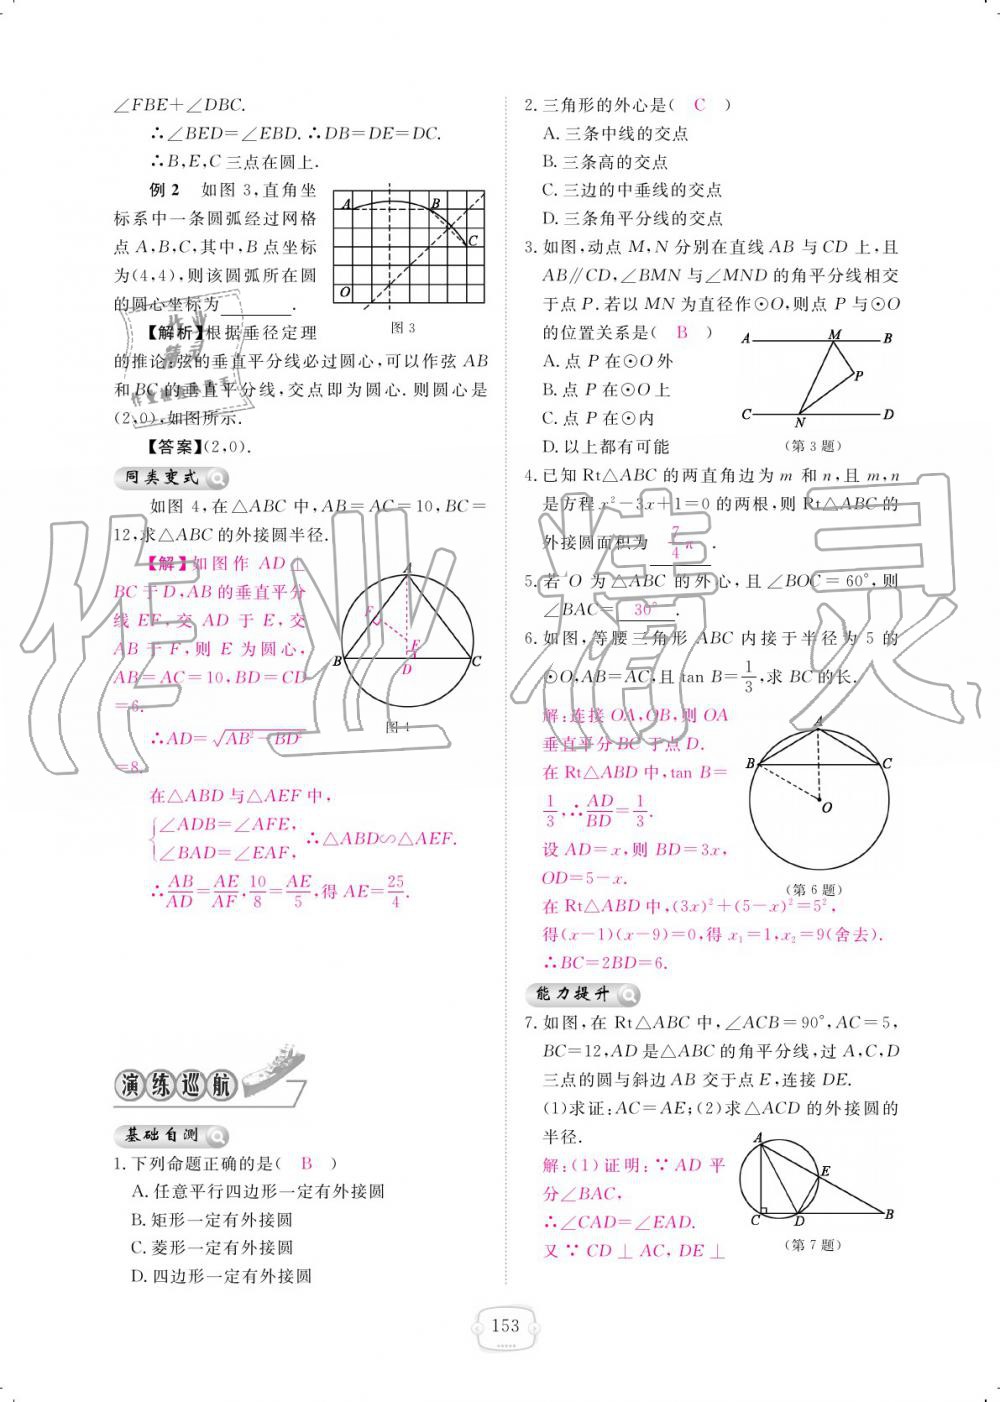 ∠FBE+∠DBC.
∴∠BED=∠EBD.∴DB=DE=DC.
∴B,E,C三点在圆上.
例2 如图3,直角坐
标系中一条圆弧经过网格
点A,B,C,其中,B点坐标
为(4,4),则该圆弧所在圆
的圆心坐标为________.
A B C O
图3
【解析】根据垂径定理
的推论:弦的垂直平分线必过圆心,可以作弦AB
和BC的垂直平分线,交点即为圆心.则圆心是
(2,0),如图所示.
【答案】(2,0).
同类变式
如图4,在△ABC中,AB=AC=10,BC=
12,求△ABC的外接圆半径.
【解】如图作AD⊥
BC于D,AB的垂直平分
线EF,交AD于E,交
AB于F,则E为圆心,
AB=AC=10,BD=CD
=6.
A F E B D C
图4
∴AD=√(AB²-BD²)
=8.
在△ABD与△AEF中,
{∠ADB=∠AFE,
∠BAD=∠EAF, ∴△ABD∽△AEF.
∴AB/AD=AE/AF,10/8=AE/5,得AE=25/4.
演练巡航
基础自测
1.下列命题正确的是( B )
A.任意平行四边形一定有外接圆
B.矩形一定有外接圆
C.菱形一定有外接圆
D.四边形一定有外接圆
2.三角形的外心是( C )
A.三条中线的交点
B.三条高的交点
C.三边的中垂线的交点
D.三条角平分线的交点
3.如图,动点M,N分别在直线AB与CD上,且
AB∥CD,∠BMN与∠MND的角平分线相交
于点P.若以MN为直径作⊙O,则点P与⊙O
的位置关系是( B )
A.点P在⊙O外
B.点P在⊙O上
C.点P在⊙O内
D.以上都有可能
A M B P C N D
(第3题)
4.已知Rt△ABC的两直角边为m和n,且m,n
是方程x²-3x+1=0的两根,则Rt△ABC的
外接圆面积为 7/4π .
5.若O为△ABC的外心,且∠BOC=60°,则
∠BAC= 30° .
6.如图,等腰三角形ABC内接于半径为5的
⊙O,AB=AC,且tan B=1/3,求BC的长.
解:连接OA,OB,则OA
垂直平分BC于点D.
在Rt△ABD中,tan B=
1/3,∴AD/BD=1/3.
设AD=x,则BD=3x,
OD=5-x.
A B C O
(第6题)
在Rt△ABD中,(3x)²+(5-x)²=5²,
得(x-1)(x-9)=0,得x₁=1,x₂=9(舍去).
∴BC=2BD=6.
能力提升
7.如图,在Rt△ABC中,∠ACB=90°,AC=5,
BC=12,AD是△ABC的角平分线,过A,C,D
三点的圆与斜边AB交于点E,连接DE.
(1)求证:AC=AE;(2)求△ACD的外接圆的
半径.
解:(1)证明:∵AD平
分∠BAC,
∴∠CAD=∠EAD.
又∵CD⊥AC,DE⊥
A E C D B
(第7题)
153
作业精灵